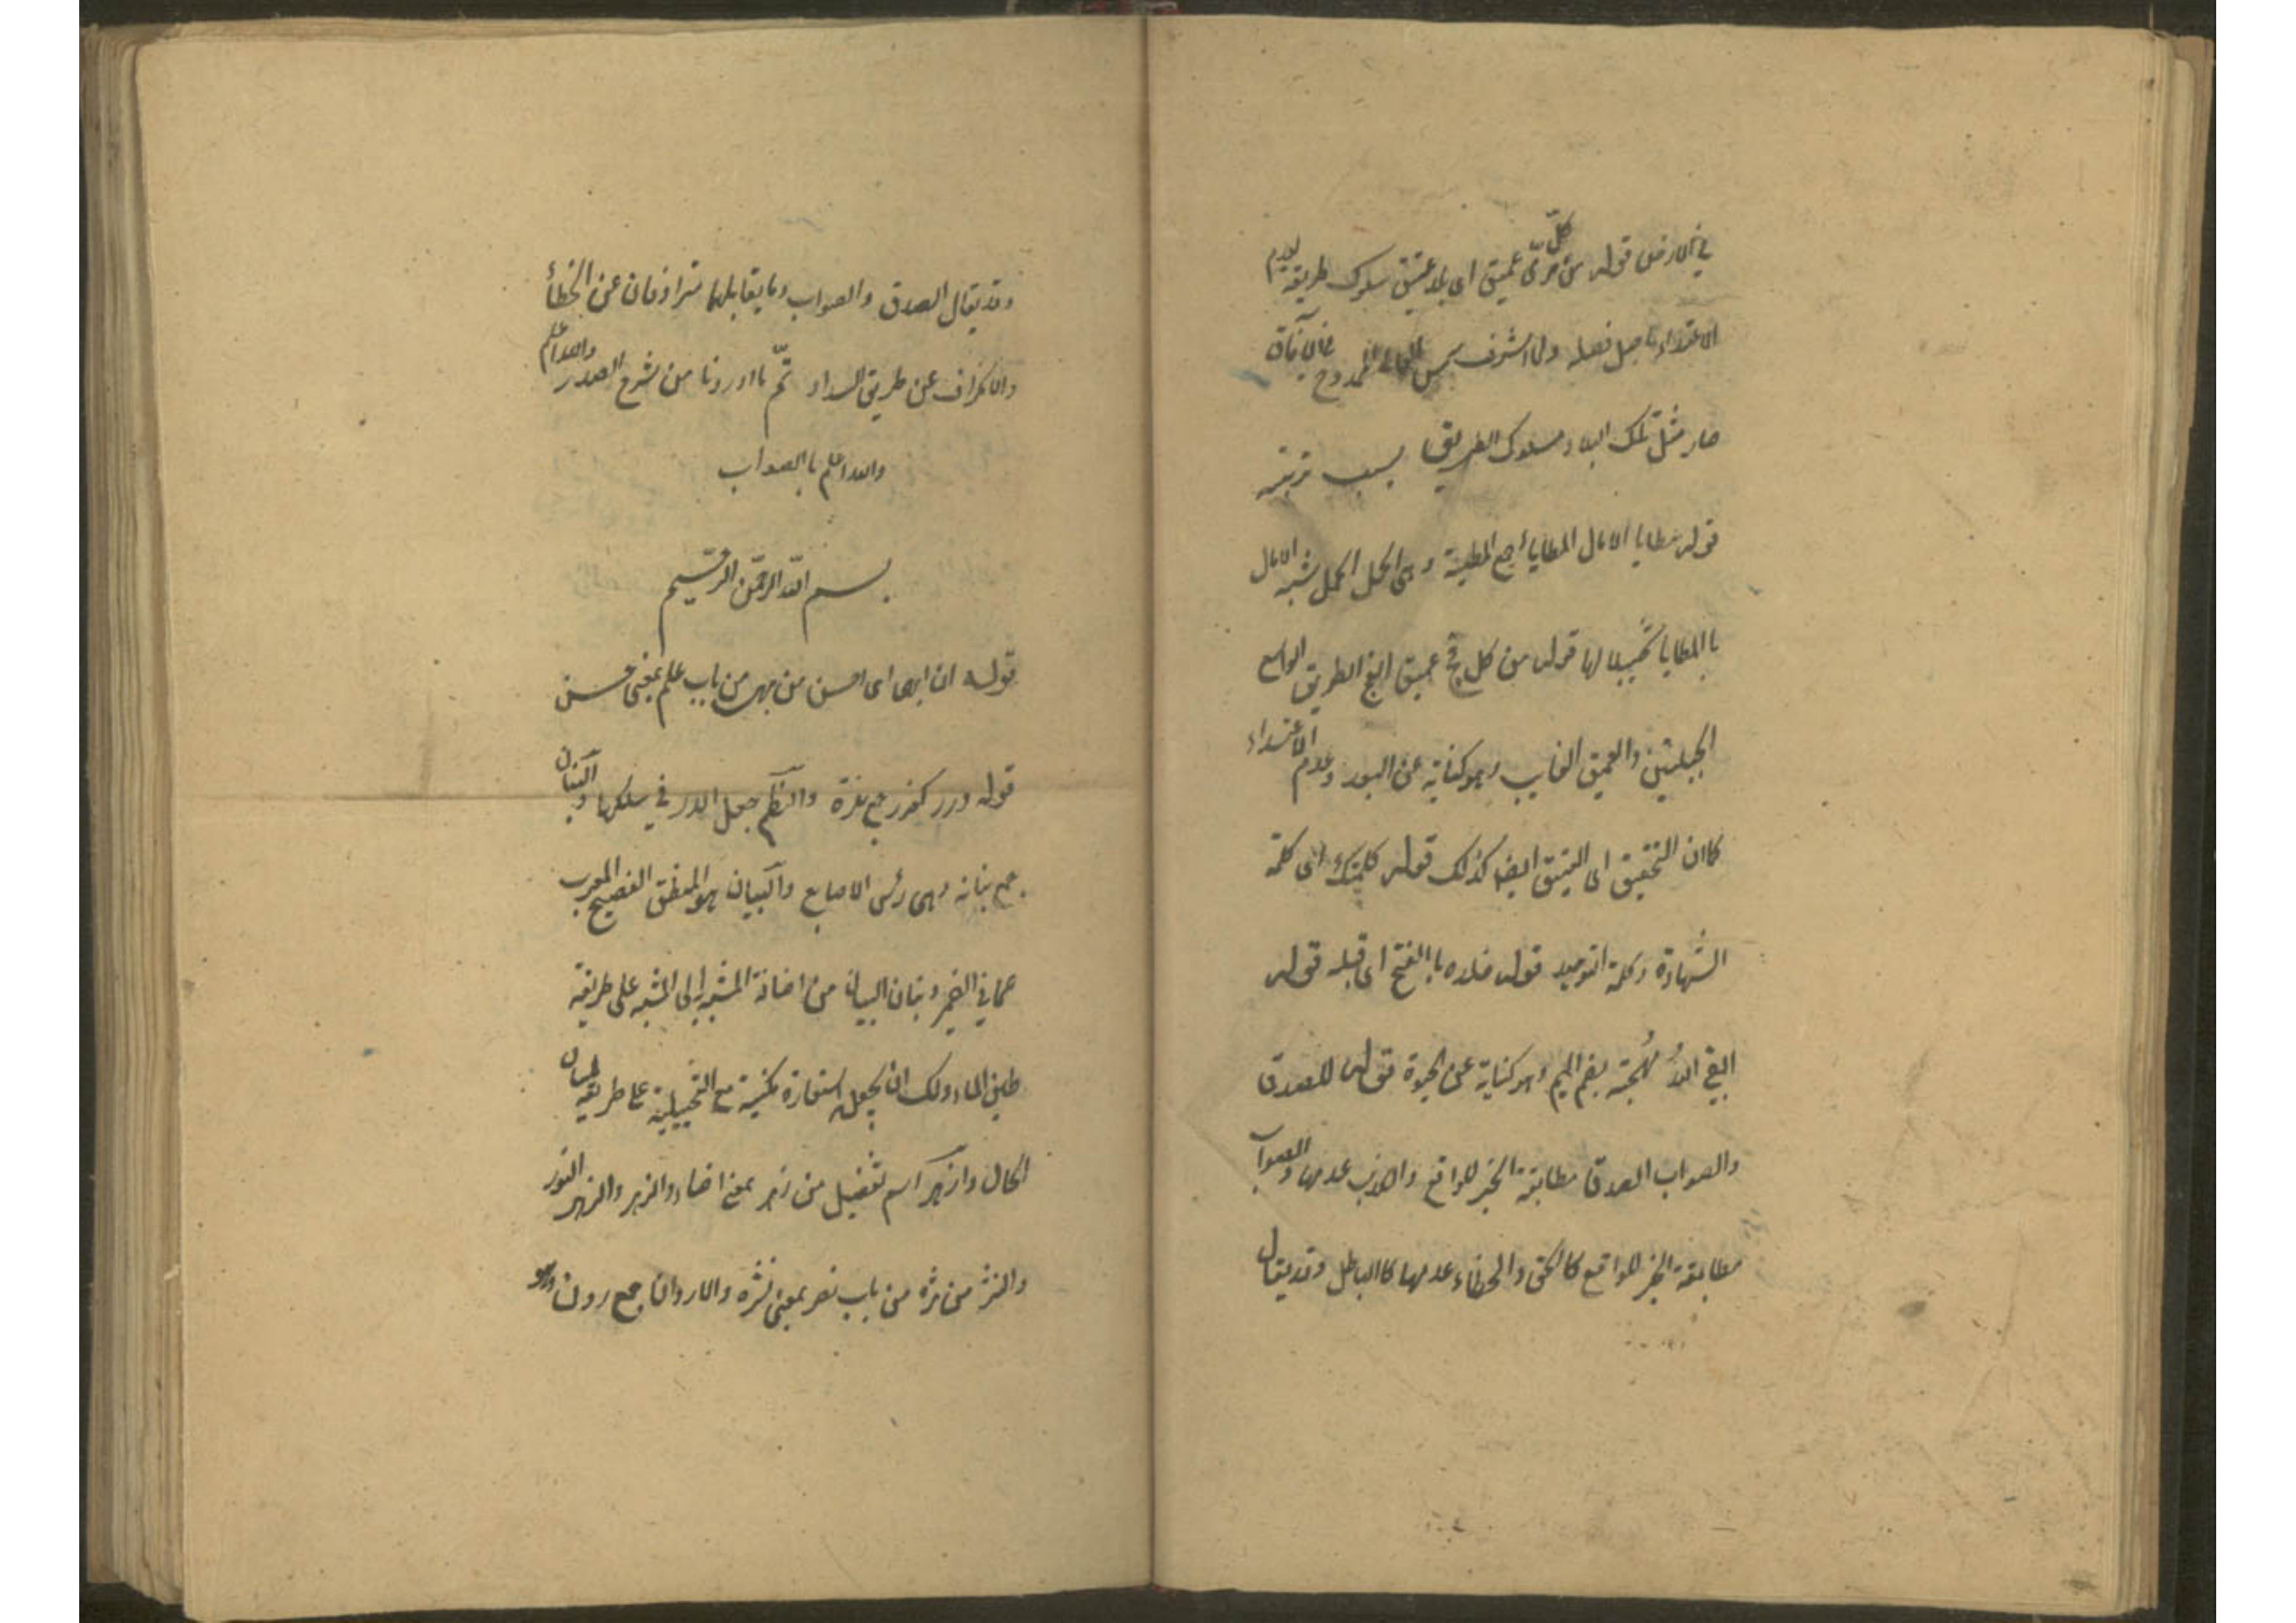 في الارض قوله من كلّ مرمّى عميق اى بلا عشق سلوك طريقة لعدم
الاعتداء باصل فصله ولما اشرف شمس الممدوح في الآفاق
صار مثل تلك البلاد مسلوك الطريق بسبب تربيته
قوله مطايا الامال المطايا جمع المطية وهى شبه الامال
باالمطايا تخييلا لها قوله من كل فج عميق الفج الطريق الواسع
الجبلين والعميق الغايب وهو كناية عن البعد وعدم الاعتداء
كاان التحقيق اى العتيق ايضا كذلك قوله كلمتك اى كلمة
الشهادة وكلمة التوحيد قوله خلده باالفتح اى قبله قوله
ابقى اللّهُ مُهجته بضم الميم وهو كناية عن الحيوة قوله للصدق
والصواب الصدق مطابقة الخبر للواقع والكذب عدمها والصواب
مطابقة الخبر للواقع كالحق والخطاء عدمها كاالباطل وقد يقال
وقد يقال الصدق والصواب وما يقابلهما مترادفان عن الخطأ
والانحراف عن طريق السداد تمّ مااوردنا من شرح الصدر والله اعلم
والله اعلم باالصواب
بسم اللّه الرحمن الرحيم
قوله ان ابهى اى احسن من بهى من باب علم بمعنى حسن
قوله درر كغرر جمع والنظم جعل الدرر في سلكها والبنان
جمع بنانة وهى رئس الاصابع والبيان هو المنطق الفصيح المعرب
عما في الضمير وبنان البيان من اضافة المشبه به الى المشبه على طريقة
لجين الماء ولك ان تجعل استعارة مكنية مع التخييلية على طريقة لسان
الحال وازهر اسم تفضيل من زهر بمعنى اضاء والزهر والزهر النور
والنثر من نثره من باب نصر بمعنى نثره والاردان جمع ردن وهو